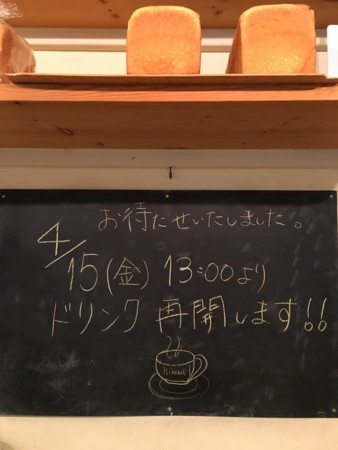 お待たせいたしました。
4/15(金) 13:00より
ドリンク 再開します!!